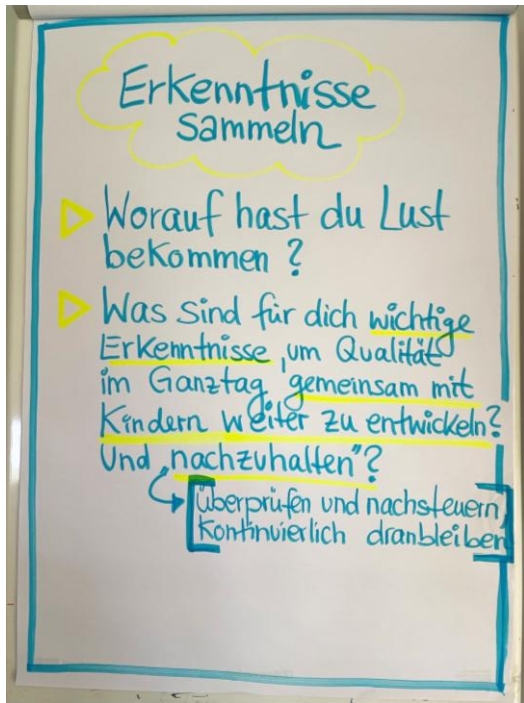 Erkenntnisse
sammeln
Worauf hast du Lust
bekommen?
Was sind für dich wichtige
Erkenntnisse, um Qualität
im Ganztag, gemeinsam mit
Kindern weiter zu entwickeln?
Und „nachzuhalten"?
überprüfen und nachsteuern,
kontinuierlich dranbleiben